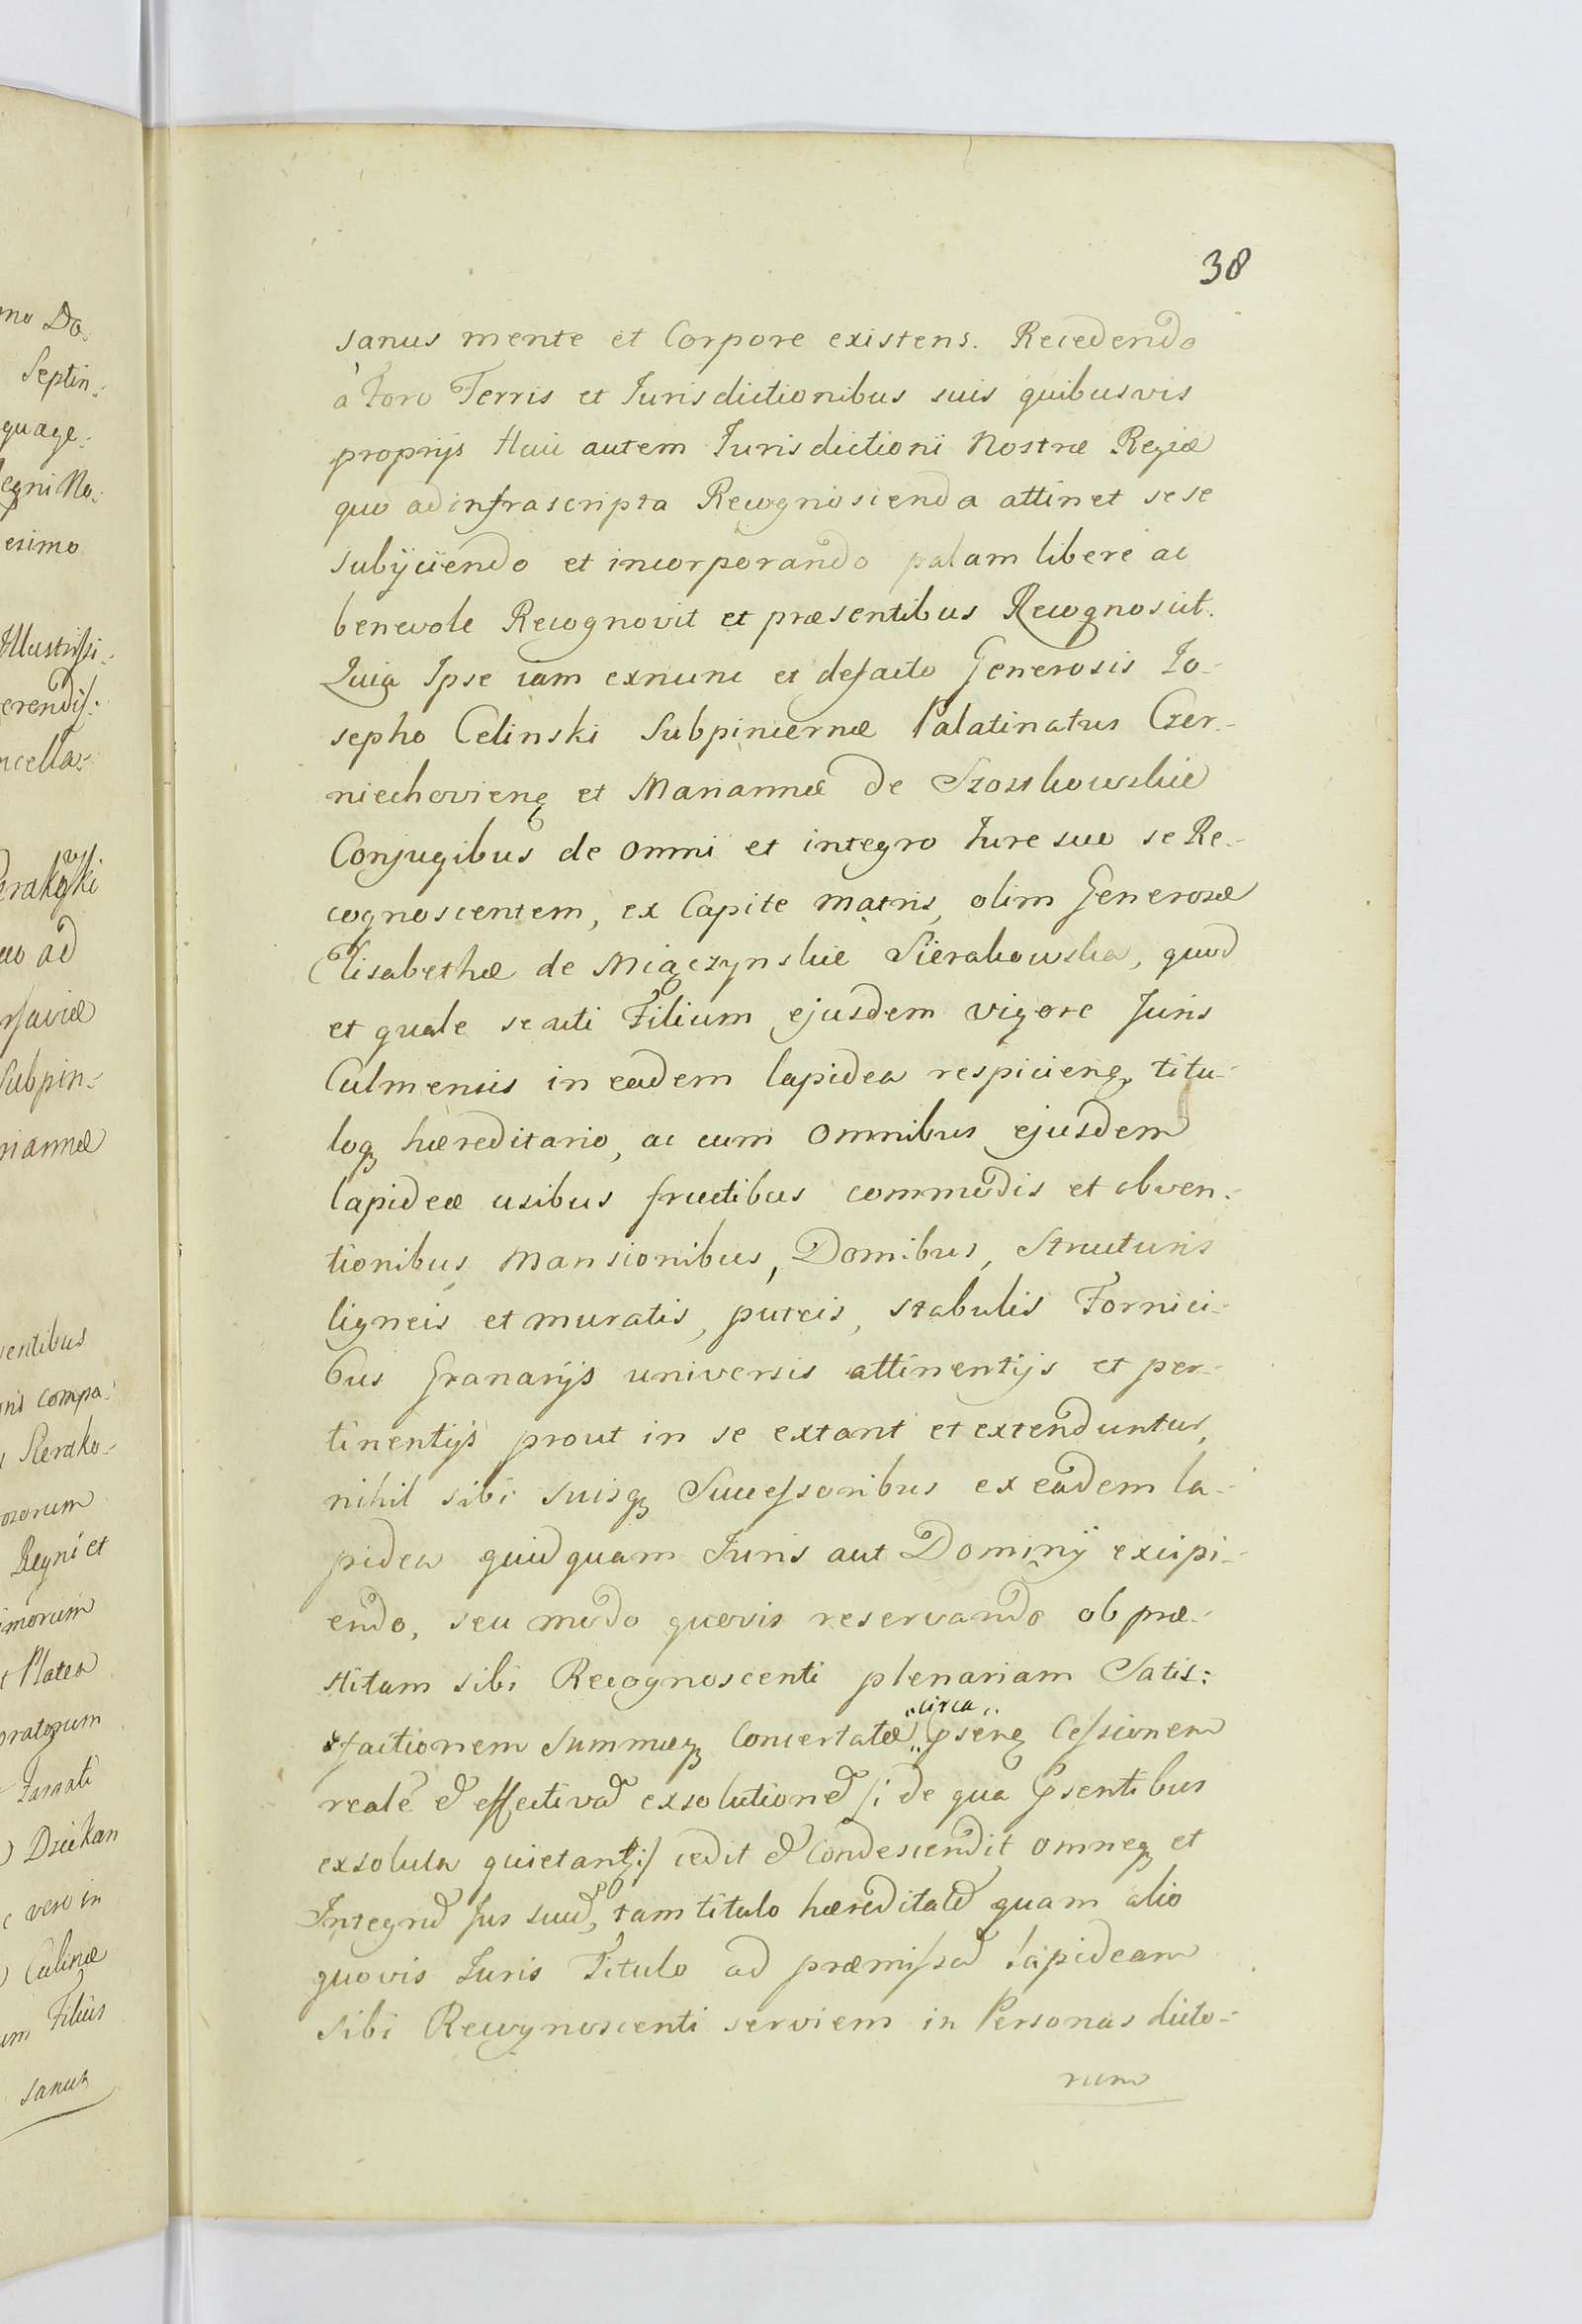 no Do-
Septin-
quage-
egni No-
esimo
Illustrissi-
erendiss:
ncella-
erakowski
ad
rsaviæ
Subpin-
riannæ
entibus
compa-
Sierako-
osorum
Regni et
imorum
Platea
Dziekan
vero in
Culinæ
um Filius
sanus
38
sanus mente et Corpore existens. Recedendo
à Foro Terris et Jurisdictionibus suis quibusvis
proprijs Huic autem Jurisdictioni Nostræ Regiæ
quo ad infrascripta Recognoscenda attinet sese
subijciendo et incorporando palam libere ac
benevole Recognovit et præsentibus Recognoscit.
Quia Ipse iam exnunc et defacto Generosis Jo-
sepho Celinski Subpincernæ Palatinatus Czer-
niechoviens et Mariannæ de Szostkowskie
Conjugibus de omni et integro Jure suo se Re-
cognoscentem, ex Capite Matris, olim Generosæ
Elisabethæ de Miączynskie Sierakowska, quod
et quale se uti Filium ejusdem vigore Juris
Culmensis in eadem lapidea respiciens, titu-
loq hæreditario, ac cum omnibus ejusdem
lapideæ usibus fructibus commodis et obven-
tionibus Mansionibus, Domibus, Structuris
ligneis et muratis, puteis, stabulis Fornici-
bus Granarijs universis attinentijs et per-
tinentijs prout in se extant et extenduntur,
nihil sibi suisq Successoribus ex eadem la-
pidea quidquam Juris aut Dominij excipi-
endo, seu modo quovis reservando ob præ-
stitam sibi Recognoscenti plenariam Satis:
factionem Summæq Concertatæ „circa„ psens Cessionem
realē et effectivā exsolutionē /: de qua psentibus
exsoluta quietant :/ cedit et Condescendit omneq et
Integrū Jus suū, tam titulo hæreditatē quam alio
quovis Juris Titulo ad præmissā lapideam
sibi Recognoscenti serviem in Personas dicto-
rum